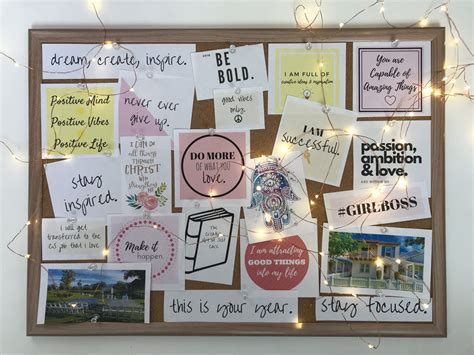 dream, create, inspire.
BE
BOLD.
I AM FULL OF
creative ideas & inspiration
You are
Capable of
Amazing Things
Positive Mind
Positive Vibes
Positive Life
never ever
give up.
good vibes
only.
I AM
successful.
I CAN DO
all things
THROUGH
CHRIST
WHO
DO MORE
OF WHAT YOU
love.
passion,
ambition
& love.
stay
inspired.
#GIRLBOSS
I will get
transferred to the
job that I
Make it
happen.
I am attracting
GOOD THINGS
INTO MY LIFE
this is your year.
stay focused.